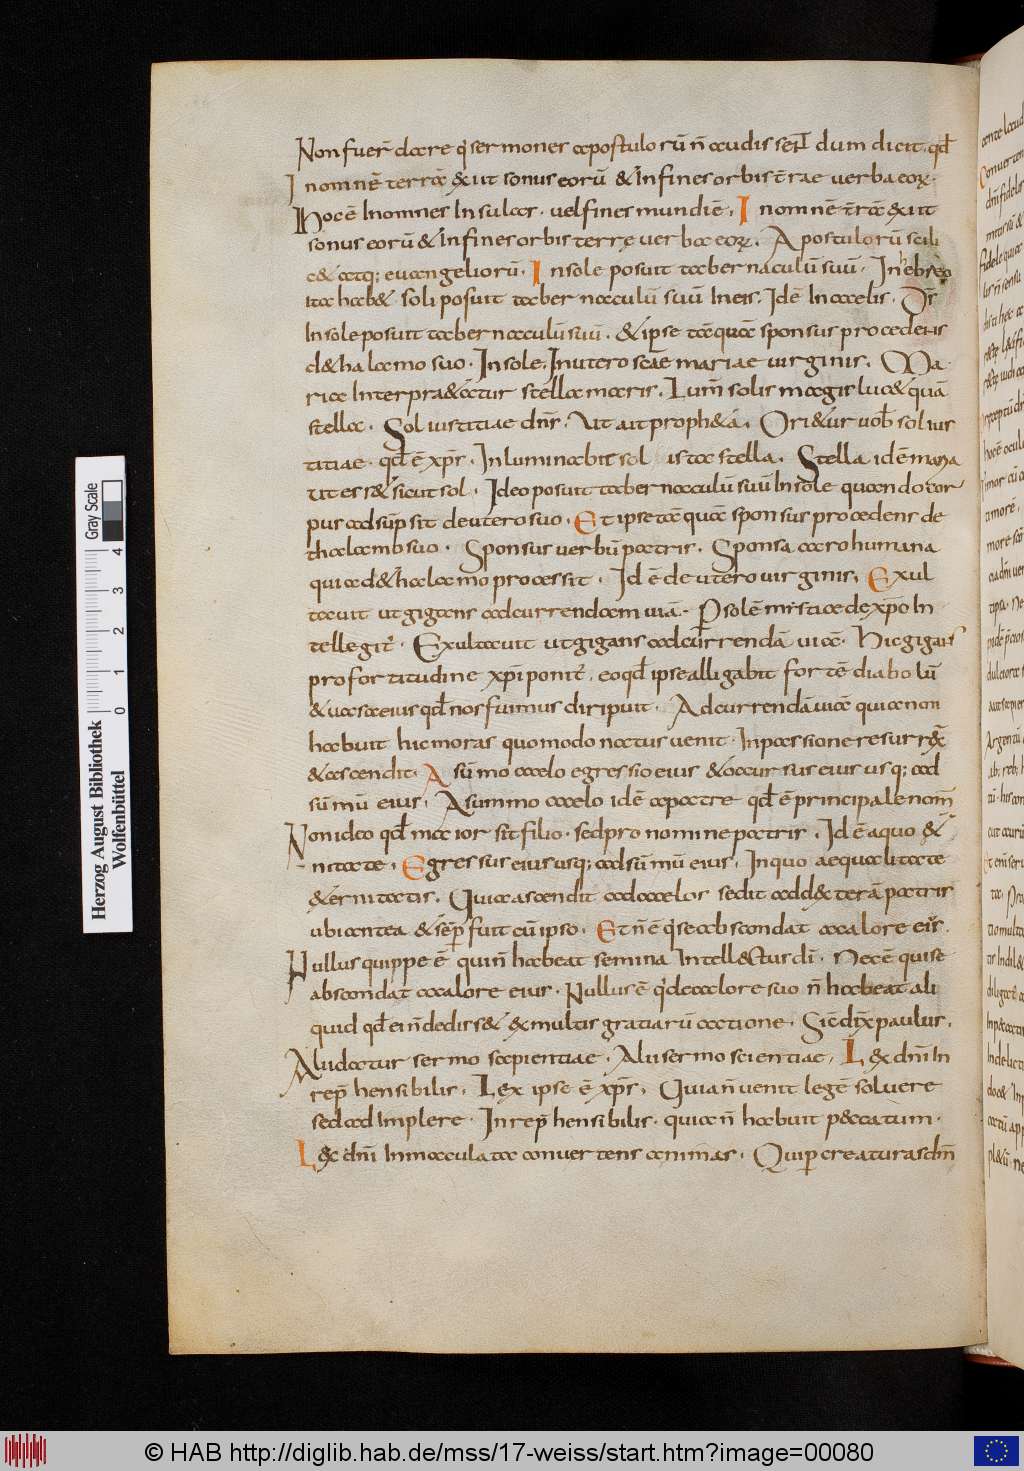 Non fuer̄ doc̄re q̇ sermones apostulorū n̄ audis sēt dum dicit. qđ
In omnē terrā exiit sonus eorū & In fines orbis t̄rae uerba eoꝝ.
Hoc ē In omnes Insulas. uel fines mundi ē. In omnē t̄rā exiit
sonus eorū & In fines orbis terrę uerba eoꝝ. Apostulorū scili
c& atq; euangeliorū. In sole posuit tabernaculū suū. In ebreo
ita hab& soli posuit tabernaculū suū In eis. Idē In caelis.
In sole posuit tabernaculū suū. & ipse tāquā sponsus procedens
d& halamo suo. In sole. In utero scāe mariae uirginis. Ma
riae Interpra&atur stella maris. Lum̄ solis magis luc& quā
stella. Sol iustitiae dn̄s. Ut ait proph&ā. Ori&ur uob̄ sol ius
titiae. qđ ē xp̄s. In luminabit sol ista stella. Stella idē maria
ut es s& sicut sol. Ideo posuit tabernaculū suū In sole quando cor
pus adsūpsit de utero suo. Et ipse tāquā sponsus procedens de
thalamo suo. Sponsus uerbū patris. Sponsa caro humana
quia d& halamo processit. Id ē de utero uirginis. Exul
tauit ut gigans ad currendam uiā. P solē mistice de xp̄o In
tellegit̄. Exultauit ut gigans ad currendā uiā. Hic gigans
pro fortitudine xp̄i ponit̄. eo qđ ipse alligabit fortē diabolū
& uasa eius qđ nos fuimus diripuit. Ad currendā uiā quia non
habuit hic moras quomodo natus uenit. In passione resurrex̄
& ascendit. A sūmo caelo egressio eius & occursus eius usq; ad
sūmū eius. A summo caelo idē a patre qđ ē principale nom̄
Non ideo qđ maior sit filio. sed pro nomine patris. Id ē a quo &
nitate. Egressus eius usq; ad sūmū eius. In quo aequalitate
& ērnitatis. Quia ascendit ad caelos sedit ad d&terā patris
ubi antea & sēp fuit cū ipso. Et n̄ ē q̇ se abscondat a calore eiꝰ.
Nullus quippe ē qui n̄ habeat semina Intell&ctus dī. Nec ē qui se
abscondat a calore eius. Nullus ē q̇ de calore suo n̄ habeat ali
quid qđ ei n̄ dediss& & multis gratiarū actione. Sic dix̄ paulus.
Alii datur sermo sapientiae. Alii sermo scientiae. Lex dn̄i In
rep̄hensibilis. Lex ipse ē xp̄s. Quia n̄ uenit legē soluere
sed ad Implere. In rep̄hensibilis. quia n̄ habuit p&catum.
Lex dn̄i Inmaculata conuertens animas. Quip creaturas dn̄i
Herzog August Bibliothek
Wolfenbüttel
Gray Scale
0 1 2 3 4
© HAB http://diglib.hab.de/mss/17-weiss/start.htm?image=00080